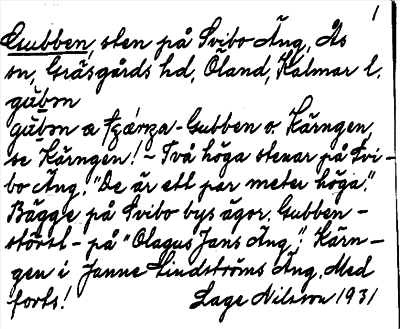 1
Gubben, sten på Svibo Äng, Ås
sn, Gräsgårds hd, Öland, Kalmar l.
gubən
gubən a - Gubben o. Kärngen,
se Kärngen! - Två höga stenar på Svi-
bo Äng. "De är ett par meter höga."
Bägge på Svibo bys ägor. Gubben -
störst - på "Olagus Jans Äng". Kärn-
gen i Janne Lindströms Äng. Med
forts! Lage Nilsson 1931